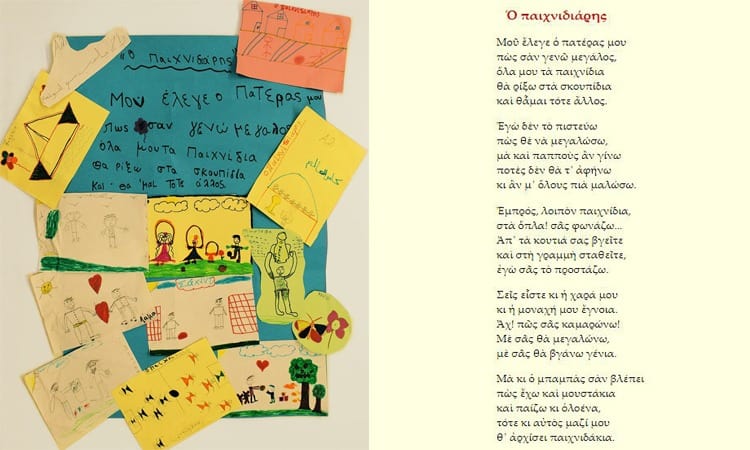 "Ο ΠαιχΝΙΔΙάΡΗς"
Μου έλεγε ο Πατέρας μου
Πως σαν γενώ μεγαλος
όλα μου τα Παιχνίδια
θα ρίξω στα σκουπίδια
και θα 'μαι τοτε άλλος.
Ὁ παιχνιδιάρης
Μοῦ ἔλεγε ὁ πατέρας μου
πὼς σὰν γενῶ μεγάλος,
ὅλα μου τὰ παιχνίδια
θὰ ρίξω στὰ σκουπίδια
καὶ θἆμαι τότε ἄλλος.
Ἐγὼ δὲν τὸ πιστεύω
πὼς θὲ νὰ μεγαλώσω,
μὰ καὶ παπποὺς ἂν γίνω
ποτὲς δὲν θὰ τ' ἀφήνω
κι ἂν μ' ὅλους πιὰ μαλώσω.
Ἐμπρός, λοιπὸν παιχνίδια,
στὰ ὅπλα! σᾶς φωνάζω...
Ἀπ' τὰ κουτιά σας βγεῖτε
καὶ στὴ γραμμὴ σταθεῖτε,
ἐγὼ σᾶς τὸ προστάζω.
Σεῖς εἶστε κι ἡ χαρά μου
κι ἡ μοναχή μου ἔγνοια.
Ἄχ! πῶς σᾶς καμαρώνω!
Μὲ σᾶς θὰ μεγαλώνω,
μὲ σᾶς θὰ βγάνω γένια.
Μὰ κι ὁ μπαμπὰς σὰν βλέπει
πὼς ἔχω καὶ μουστάκια
καὶ παίζω κι ὁλοένα,
τότε κι αὐτὸς μαζί μου
θ' ἀρχίσει παιχνιδάκια.